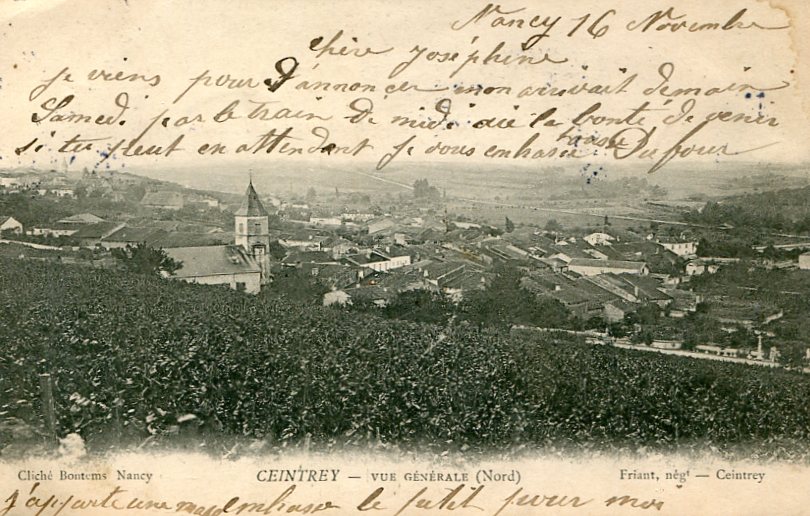 Nancy 16 Novembre
chère Joséphine
je viens pour D'annoncer mon arrivait demain
Samedi par le train de midi aie la bonté de venir
si tu peut en attendant je vous embrasse Dufour
CEINTREY — VUE GÉNÉRALE (Nord)
Cliché Bontems Nancy
Friant, négt — Ceintrey
embrasse le petit pour moi